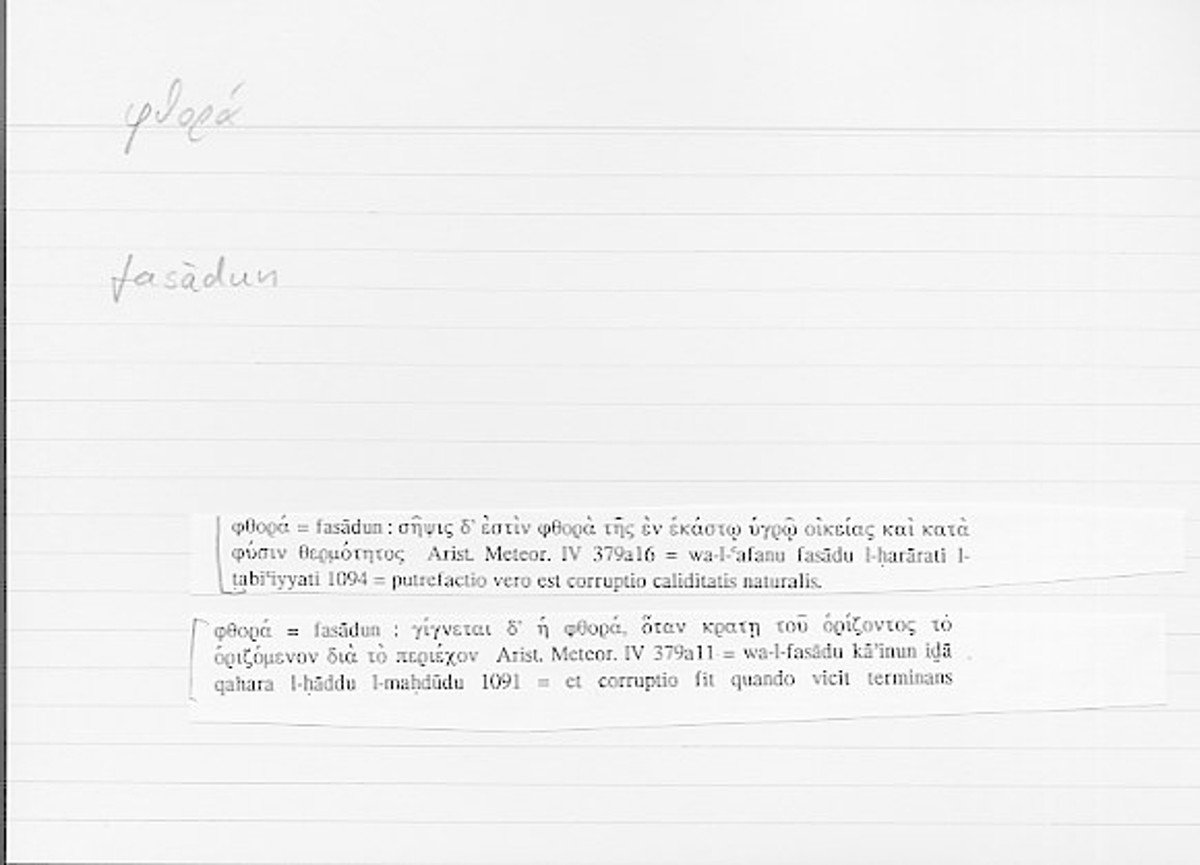 φθορά
fasādun
φθορά = fasādun : σῆψις δ' ἐστὶν φθορὰ τῆς ἐν ἑκάστῳ ὑγρῷ οἰκείας καὶ κατὰ
φύσιν θερμότητος Arist. Meteor. IV 379a16 = wa-l-ʿafanu fasādu l-ḥarārati l-
ṭabīʿiyyati 1094 = putrefactio vero est corruptio caliditatis naturalis.
φθορά = fasādun : γίγνεται δ' ἡ φθορά, ὅταν κρατῃ τοῦ ὁρίζοντος τὸ
ὁριζόμενον διὰ τὸ περιέχον Arist. Meteor. IV 379a11 = wa-l-fasādu kāʾinun iḏā
qahara l-ḥāddu l-maḥdūdu 1091 = et corruptio fit quando vicit terminans